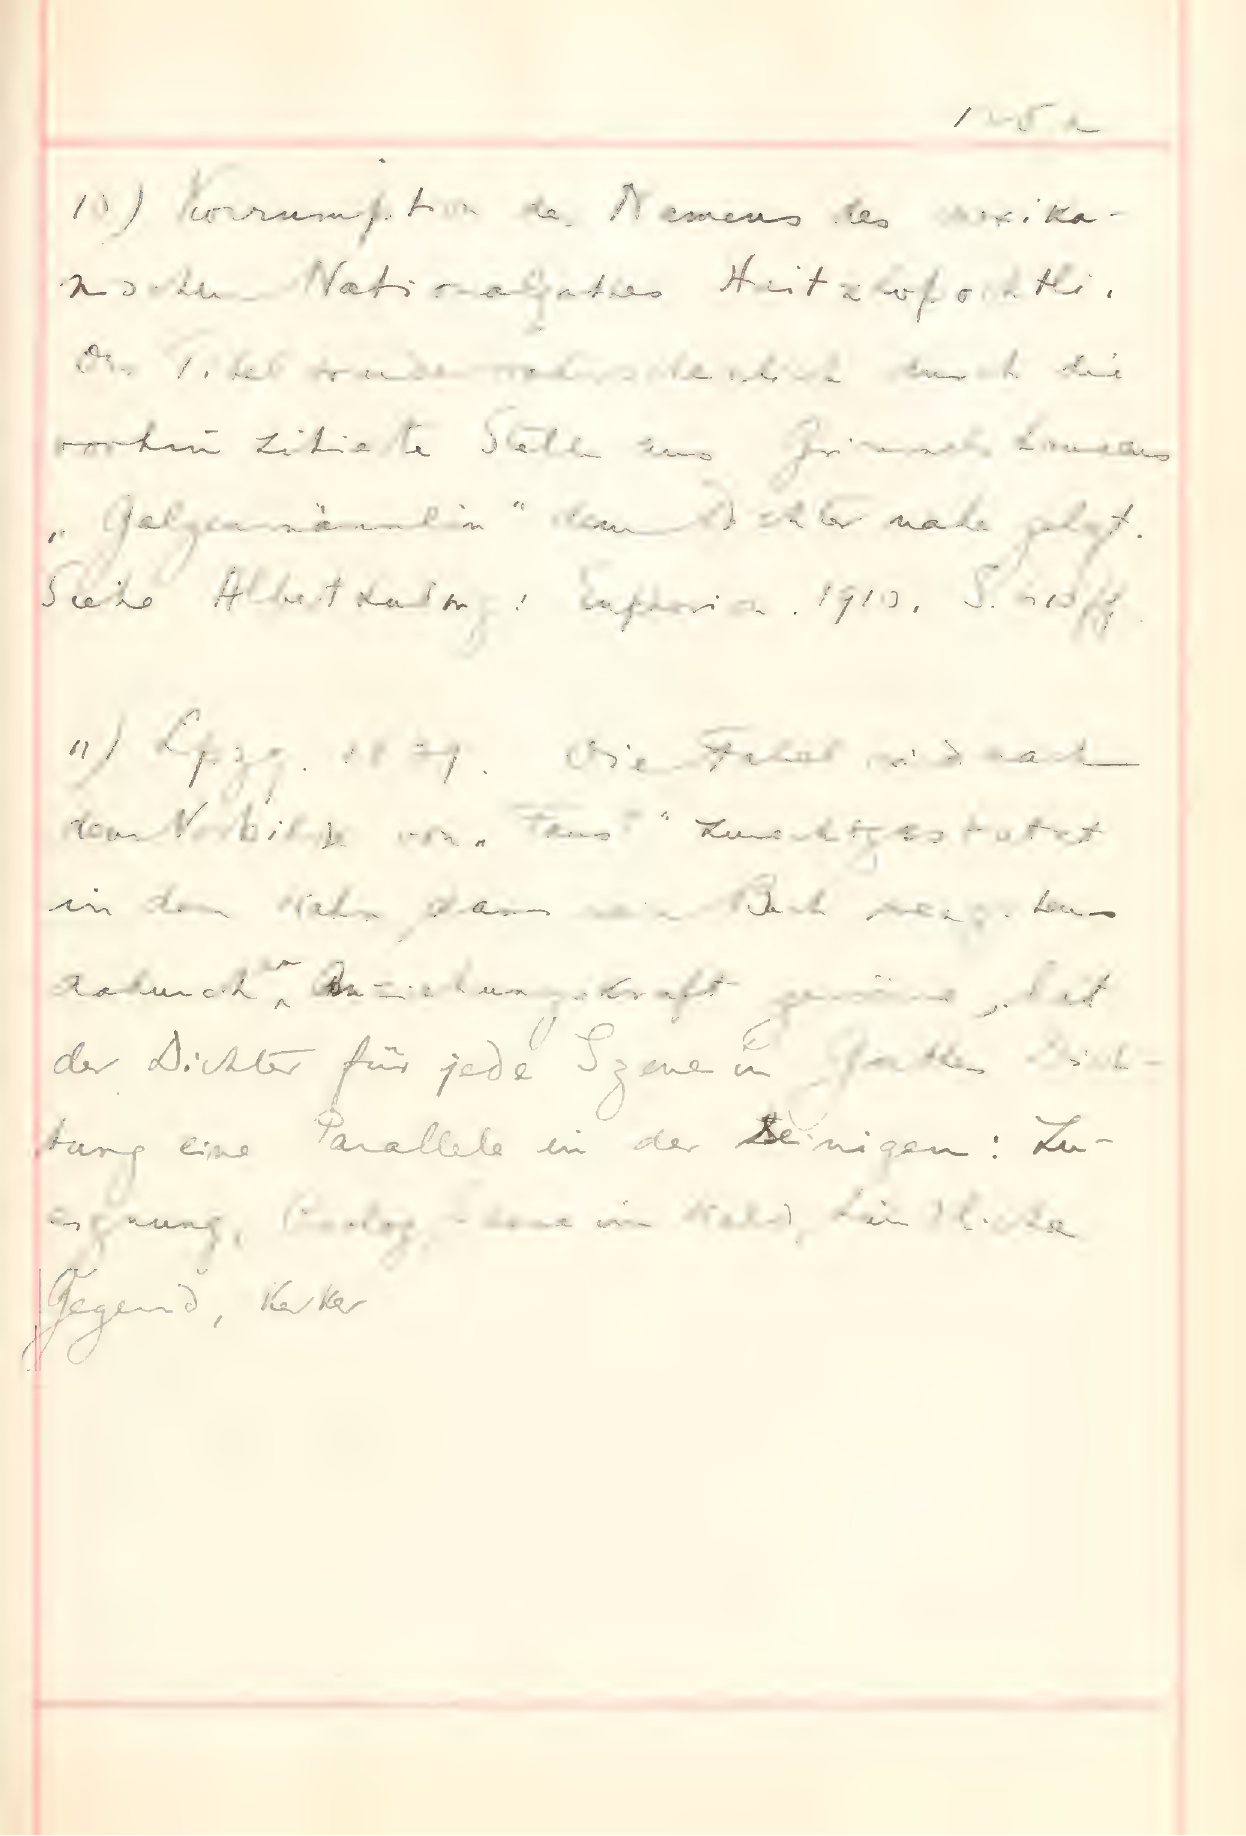 10) Korrumption des Namens des mexika-
nischen Nationalgottes Huitzlopochtli.
Der Titel wurde wahrscheinlich durch die
vorhin zitierte Stelle aus Grimmelshausens
„Galgenmännlin“ dem Dichter nahe gelegt.
Siehe Albert Ludwig: Euphorion. 1910. S.
11) Lpzg. Die Fabel wird nach
dem Vorbilde von „Faust“ zurechtgestutzt
in dem Wahn, dass sein Buch wenigstens
dadurch an Anziehungskraft gewänne, hat
der Dichter für jede Szene in Goethes Dich-
tung eine Parallele in der Seinigen: Zu-
eignung, Prolog, Szene im Wald, Ländliche
Gegend, Kerker